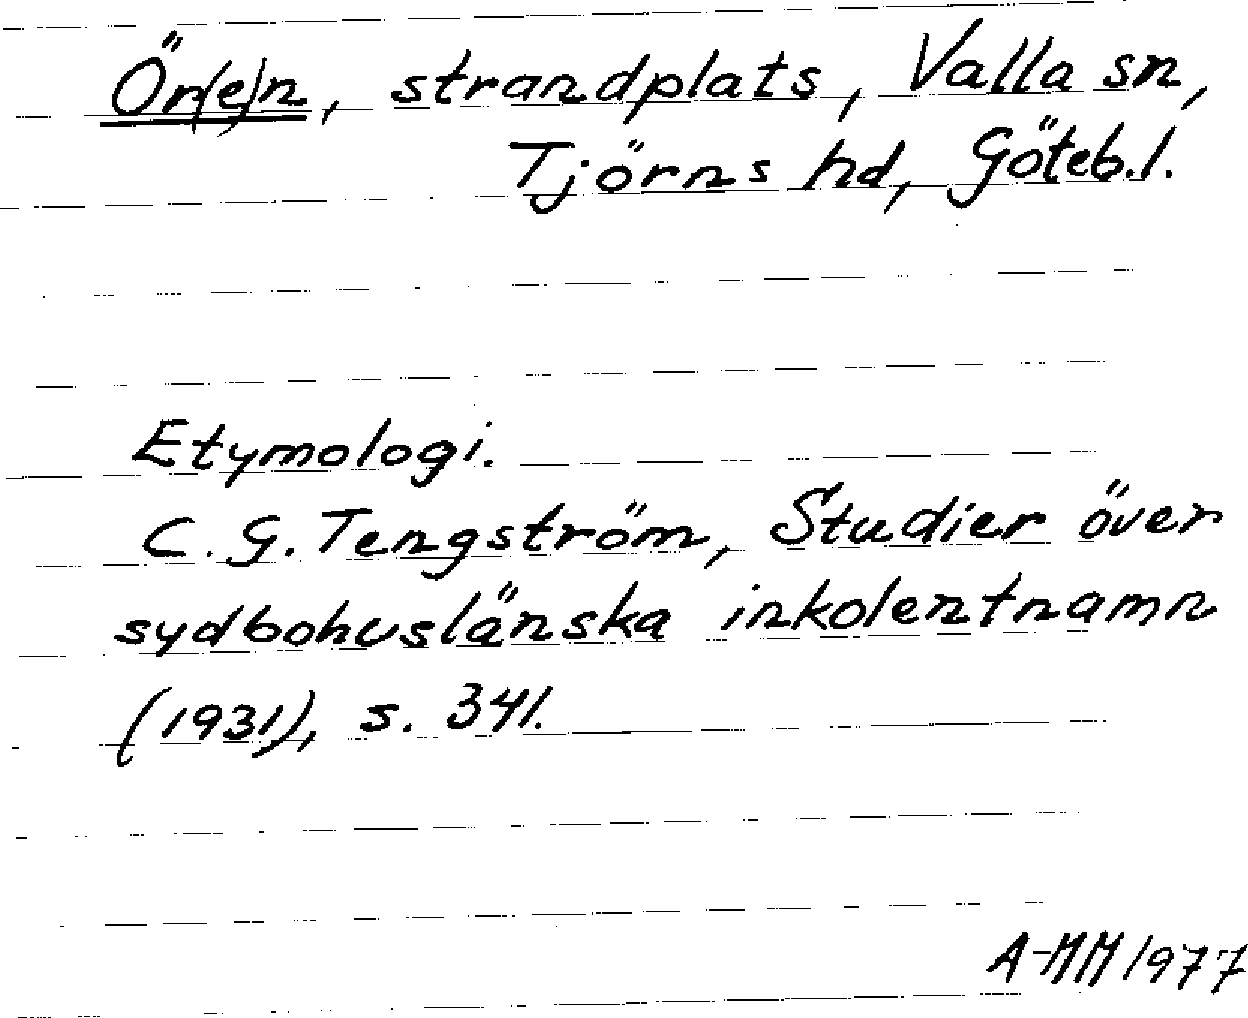 Ör(e)n, strandplats, Valla sn,
Tjörns hd, Göteb.l.
Etymologi.
C.G. Tengström, Studier över
sydbohuslänska inkolentnamn
(1931), s. 341.
A-MM 1977